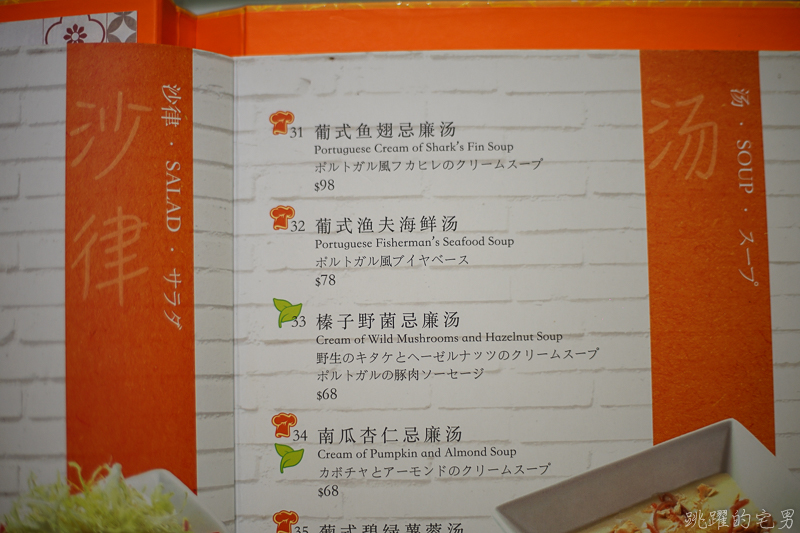 沙律
沙律 · SALAD · サラダ
31 葡式鱼翅忌廉汤
Portuguese Cream of Shark's Fin Soup
ポルトガル風フカヒレのクリームスープ
$98
32 葡式渔夫海鲜汤
Portuguese Fisherman's Seafood Soup
ポルトガル風ブイヤベース
$78
33 榛子野菌忌廉汤
Cream of Wild Mushrooms and Hazelnut Soup
野生のキタケとヘーゼルナッツのクリームスープ
ポルトガルの豚肉ソーセージ
$68
34 南瓜杏仁忌廉汤
Cream of Pumpkin and Almond Soup
カボチャとアーモンドのクリームスープ
$68
35 葡式碧绿薯蓉汤
汤
汤 · SOUP · スープ
跳躍的宅男